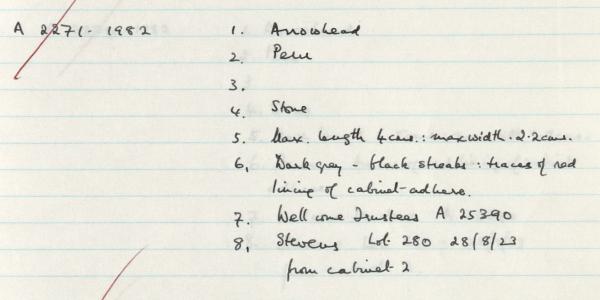 A 2271-1982 1. Arrowhead
2. Peru
3.
4. Stone
5. Max. length 4cms.: max width. 2.2cms.
6. Dark grey - black streaks: traces of red
lining of cabinet adhere.
7. Wellcome Trustees A 25390
8. Stevens Lot. 280 28/8/23
from cabinet 2